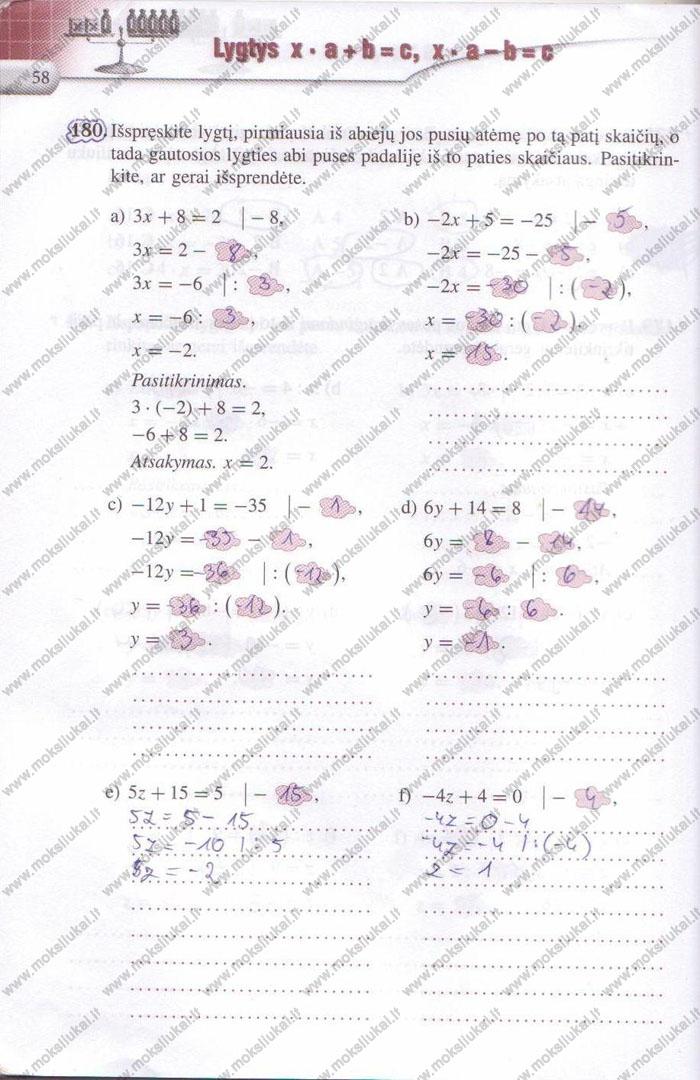 Lygtys x · a + b = c, x · a – b = c
58
180. Išspręskite lygtį, pirmiausia iš abiejų jos pusių atėmę po tą patį skaičių, o
tada gautosios lygties abi puses padaliję iš to paties skaičiaus. Pasitikrin-
kite, ar gerai išsprendėte.
a) 3x + 8 = 2 | – 8,
3x = 2 – 8,
3x = –6 | : 3,
x = –6 : 3,
x = –2.
Pasitikrinimas.
3 · (–2) + 8 = 2,
–6 + 8 = 2.
Atsakymas. x = 2.
b) –2x + 5 = –25 | – 5,
–2x = –25 – 5,
–2x = –30 | : (–2),
x = –30 : (–2),
x = 15.
c) –12y + 1 = –35 | – 1,
–12y = –35 – 1,
–12y = –36 | : (–12),
y = –36 : (–12),
y = 3.
d) 6y + 14 = 8 | – 14,
6y = 8 – 14,
6y = –6 | : 6,
y = –6 : 6.
y = –1.
e) 5z + 15 = 5 | – 15,
5z = 5 – 15
5z = –10 | : 5
z = –2
f) –4z + 4 = 0 | – 4,
–4z = 0 – 4
–4z = –4 | : (–4)
z = 1
www.moksliukai.lt